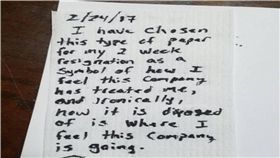 2/24/17
I have chosen
this type of paper
for my 2 week
resignation as a
symbol of how I
feel this company
has treated me,
and ironically,
how it is disposed
of is where I
feel this company
is going.